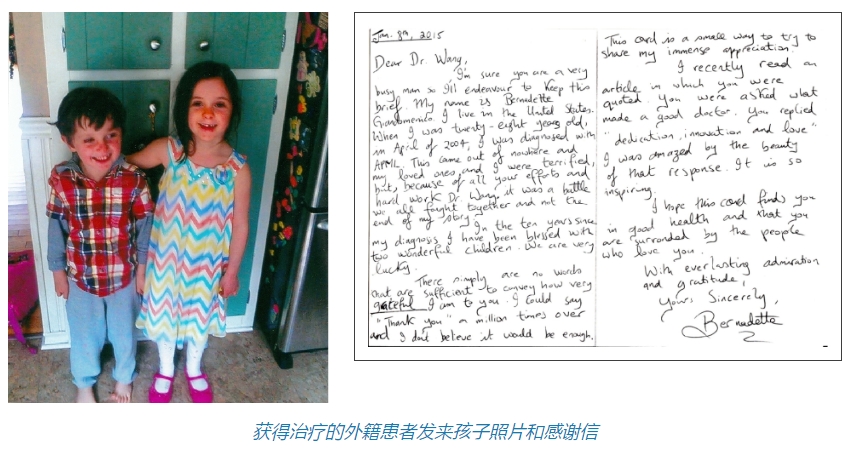 Jan. 8th, 2015
Dear Dr. Wang,
I'm sure you are a very
busy man so I'll endeavour to keep this
brief. My name is Bernadette
I live in the United States.
When I was twenty-eight years old,
in April of 2004, I was diagnosed with
APML. This came out of nowhere and
my loved ones and I were terrified,
but, because of all your efforts and
hard work Dr. Wang, it was a battle
we all fought together and not the
end of my story.
In the ten years since
my diagnosis I have been blessed with
two wonderful children. We are very
lucky.
There simply are no words
that are sufficient to convey how very
grateful I am to you. I could say
"Thank you" a million times over
and I don't believe it would be enough.
This card is a small way to try to
share my immense appreciation.
I recently read an
article in which you were
quoted. You were asked what
made a good doctor. You replied
"dedication, innovation and love"
I was amazed by the beauty
of that response. It is so
inspiring.
I hope this card finds you
in good health and that you
are surronded by the people
who love you.
With everlasting admiration
and gratitude,
Yours Sincerely,
Bernadette
获得治疗的外籍患者发来孩子照片和感谢信